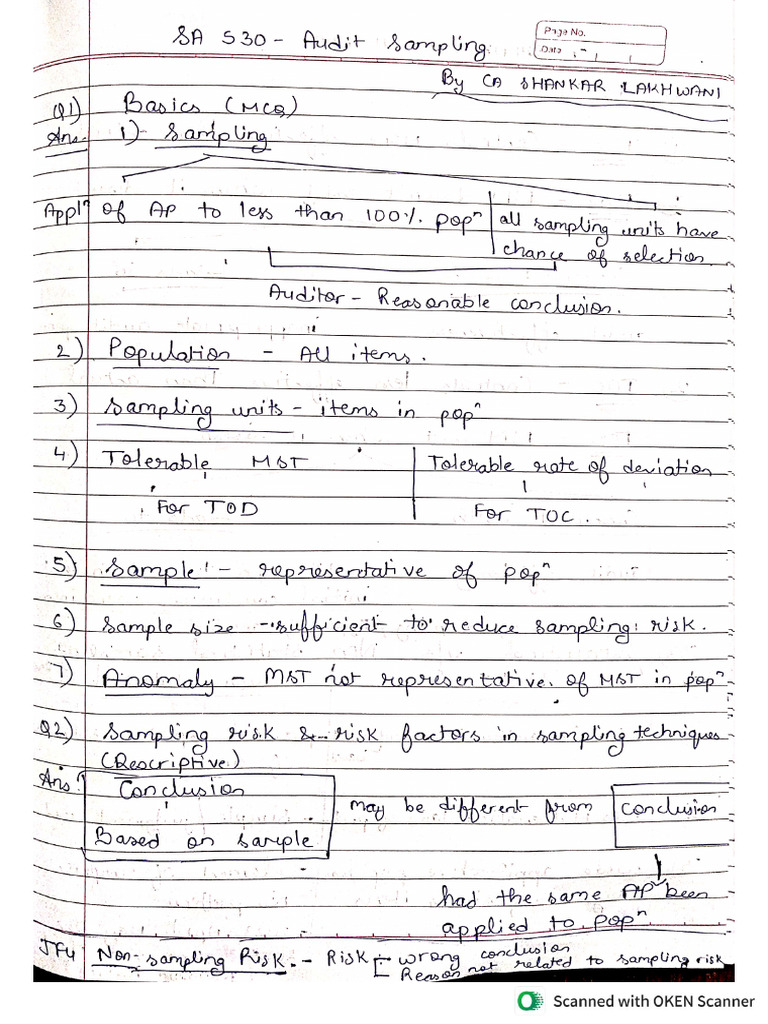 SA 530 - Audit Sampling
Page No.
Date
By CA SHANKAR LAKHWANI
Q1) Basics (MCQ)
Ans. 1)- Sampling
Appln of AP to less than 100% popn | all sampling units have chance of selection
Auditor - Reasonable conclusion.
2) Population - All items.
3) Sampling units - items in popn
4) Tolerable MST | Tolerable rate of deviation
For TOD | For TOC.
5) Sample - representative of popn
6) Sample size - sufficient to reduce sampling risk.
7) Anomaly - MST not representative of MST in popn
Q2) Sampling risk & risk factors in sampling techniques
(Descriptive)
Ans. Conclusion Based on sample may be different from conclusion
had the same AP been
applied to popn
JF4 Non-sampling Risk. - Risk wrong conclusion
Reason not related to sampling risk
Scanned with OKEN Scanner